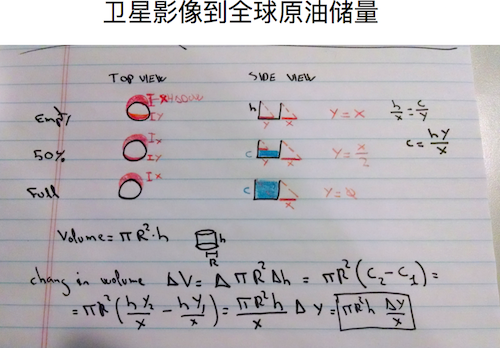 卫星影像到全球原油储量
TOP VIEW SIDE VIEW
Empty I-X SHADOW I Y h Y X Y = X h/x = c/y
c = hy/x
50% I X I Y c Y X Y = X/2
Full I X c X Y = 0
Volume = π R² · h h R
chang in volume ΔV = Δ π R² Δh = π R² (C₂ - C₁) =
= π R² (h Y₂/x - h Y₁/x) = π R² h/x Δ Y = π R² h Δy/x